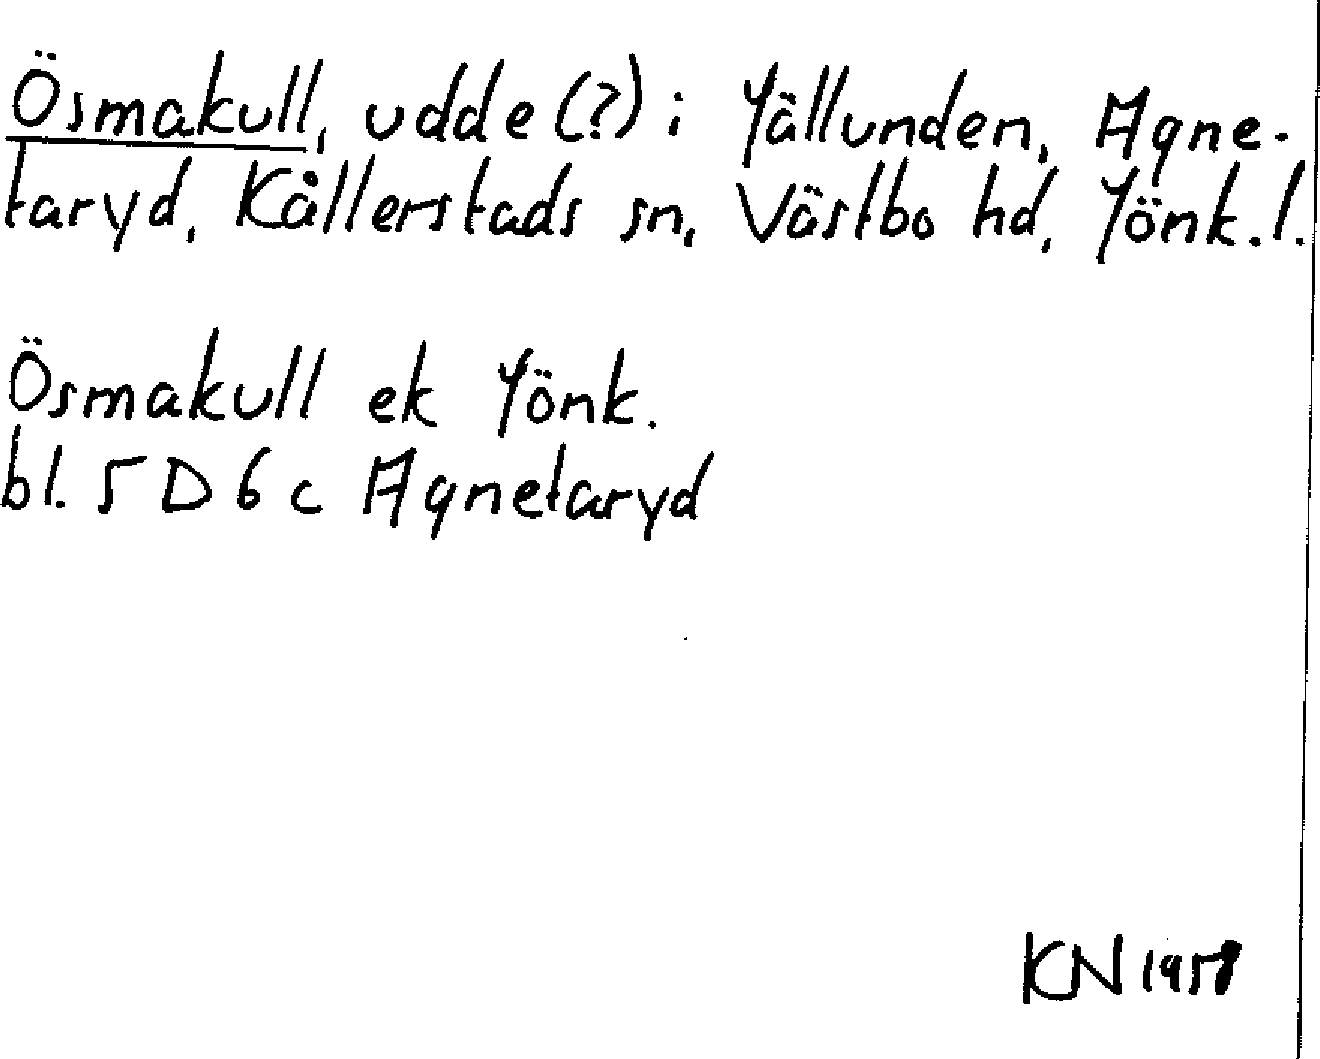 Ösmakull, udde (?) i Jällunden, Agne-
taryd, Kållerstads sn, Västbo hd, Jönk. l.
Ösmakull ek Jönk.
bl. 5 D 6 c Agnetaryd
KN 1958